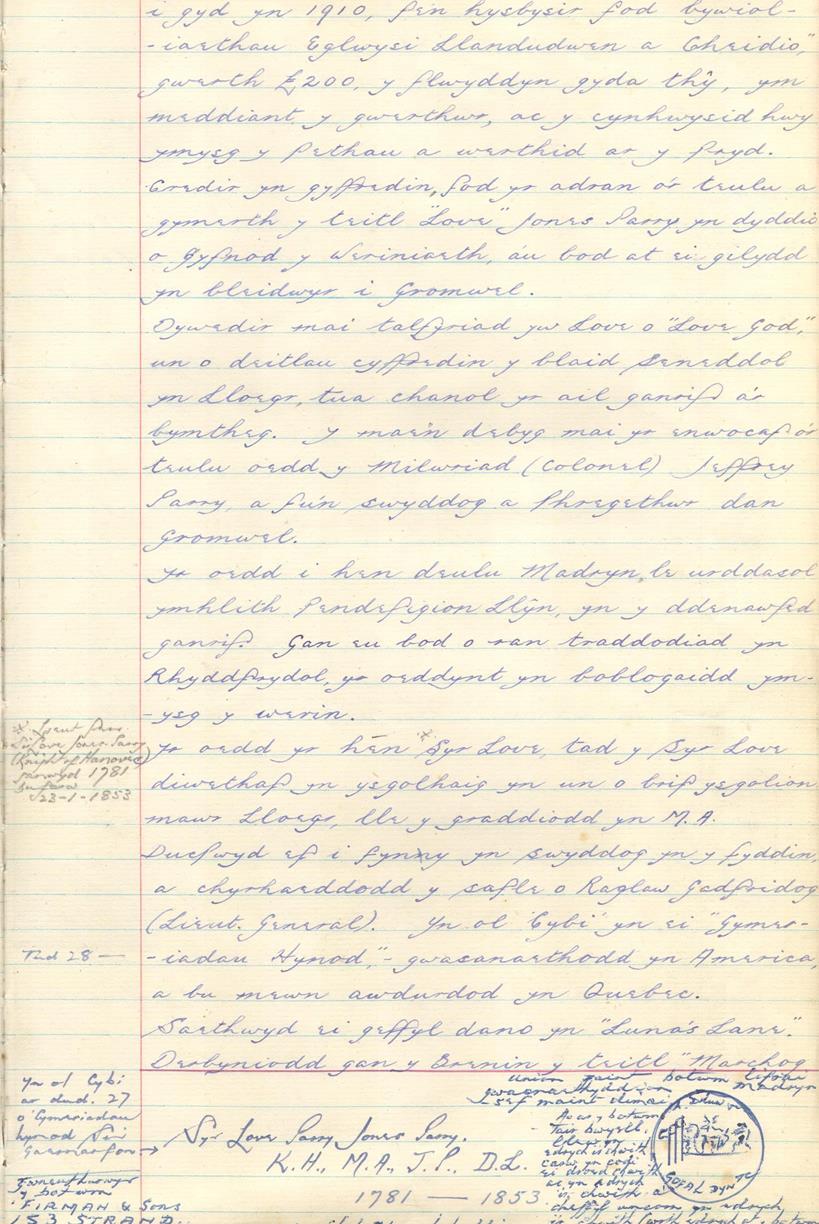 i gyd yn 1910, fe'n hysbysir fod bywiol-
-iaethau Eglwysi Llandudwen a Cheidio,
gwerth £200, y flwyddyn gyda thŷ, ym
meddiant y gwerthwr, ac y cynhwysid hwy
ymysg y Pethau a werthid ar y Pryd.
Credir yn gyffredin, fod yr adran o'r teulu a
gymerth y teitl "Love" Jones Parry yn dyddio
o Gyfnod y Weriniaeth, a'u bod at ei gilydd
yn bleidwyr i Gromwel.
Dywedir mai talfyriad yw Love o "Love God,"
un o deitlau cyffredin y blaid Seneddol
yn Lloegr, tua chanol yr ail ganrif a'r
bymtheg. Y mae'n debyg mai yr enwocaf o'r
teulu oedd y Milwriad (Colonel) Jeffrey
Parry, a fu'n swyddog a Phregethwr dan
Gromwel.
Yr oedd i hen deulu Madryn, le urddasol
ymhlith Pendefigion Llŷn, yn y ddenawfed
ganrif. Gan eu bod o ran traddodiad yn
Rhyddfrydol, yr oeddynt yn boblogaidd ym-
-ysg y werin.
* Lieut Gen.
Sir Love Jones Parry
(Knight of Hanover)
ganwyd 1781
bu farw
23-1-1853
Yr oedd yr hen *Syr Love, tad y Syr Love
diwethaf yn ysgolhaig yn un o brif ysgolion
mawr Lloegr, lle y graddiodd yn M.A.
Ducpwyd ef i fynny yn swyddog yn y fyddin,
a chyrhaeddodd y safle o Raglaw Gadfridog
(Lieut. General). Yn ol "Cybi" yn ei "Gymer-
Tud 28 —
-iadau Hynod," - gwasanaethodd yn America,
a bu mewn awdurdod yn Quebec.
Saethwyd ei geffyl dano yn "Luna's Lane".
Derbyniodd gan y Brenin y teitl "Marchog
yn ol Cybi
ar dud. 27
o Gymeriadau
hynod Sir
Gaernarfon →
Syr Love Parry Jones Parry.
K.H., M.A., J.P., D.L.
1781 — 1853
union faint botwm lifrai
gwasnaethyddion Madryn
sef maint dimai
Ar y botwm
Tair bwyell,
Llew yn
edrych i chwith
carw yn codi
ei droed chwith
ac yn edrych
i'r chwith a
cheffyl uncorn yn edrych
GOFAL DYN
Gwneuthurwyr
y botwm
FIRMAN & SONS
153 STRAND